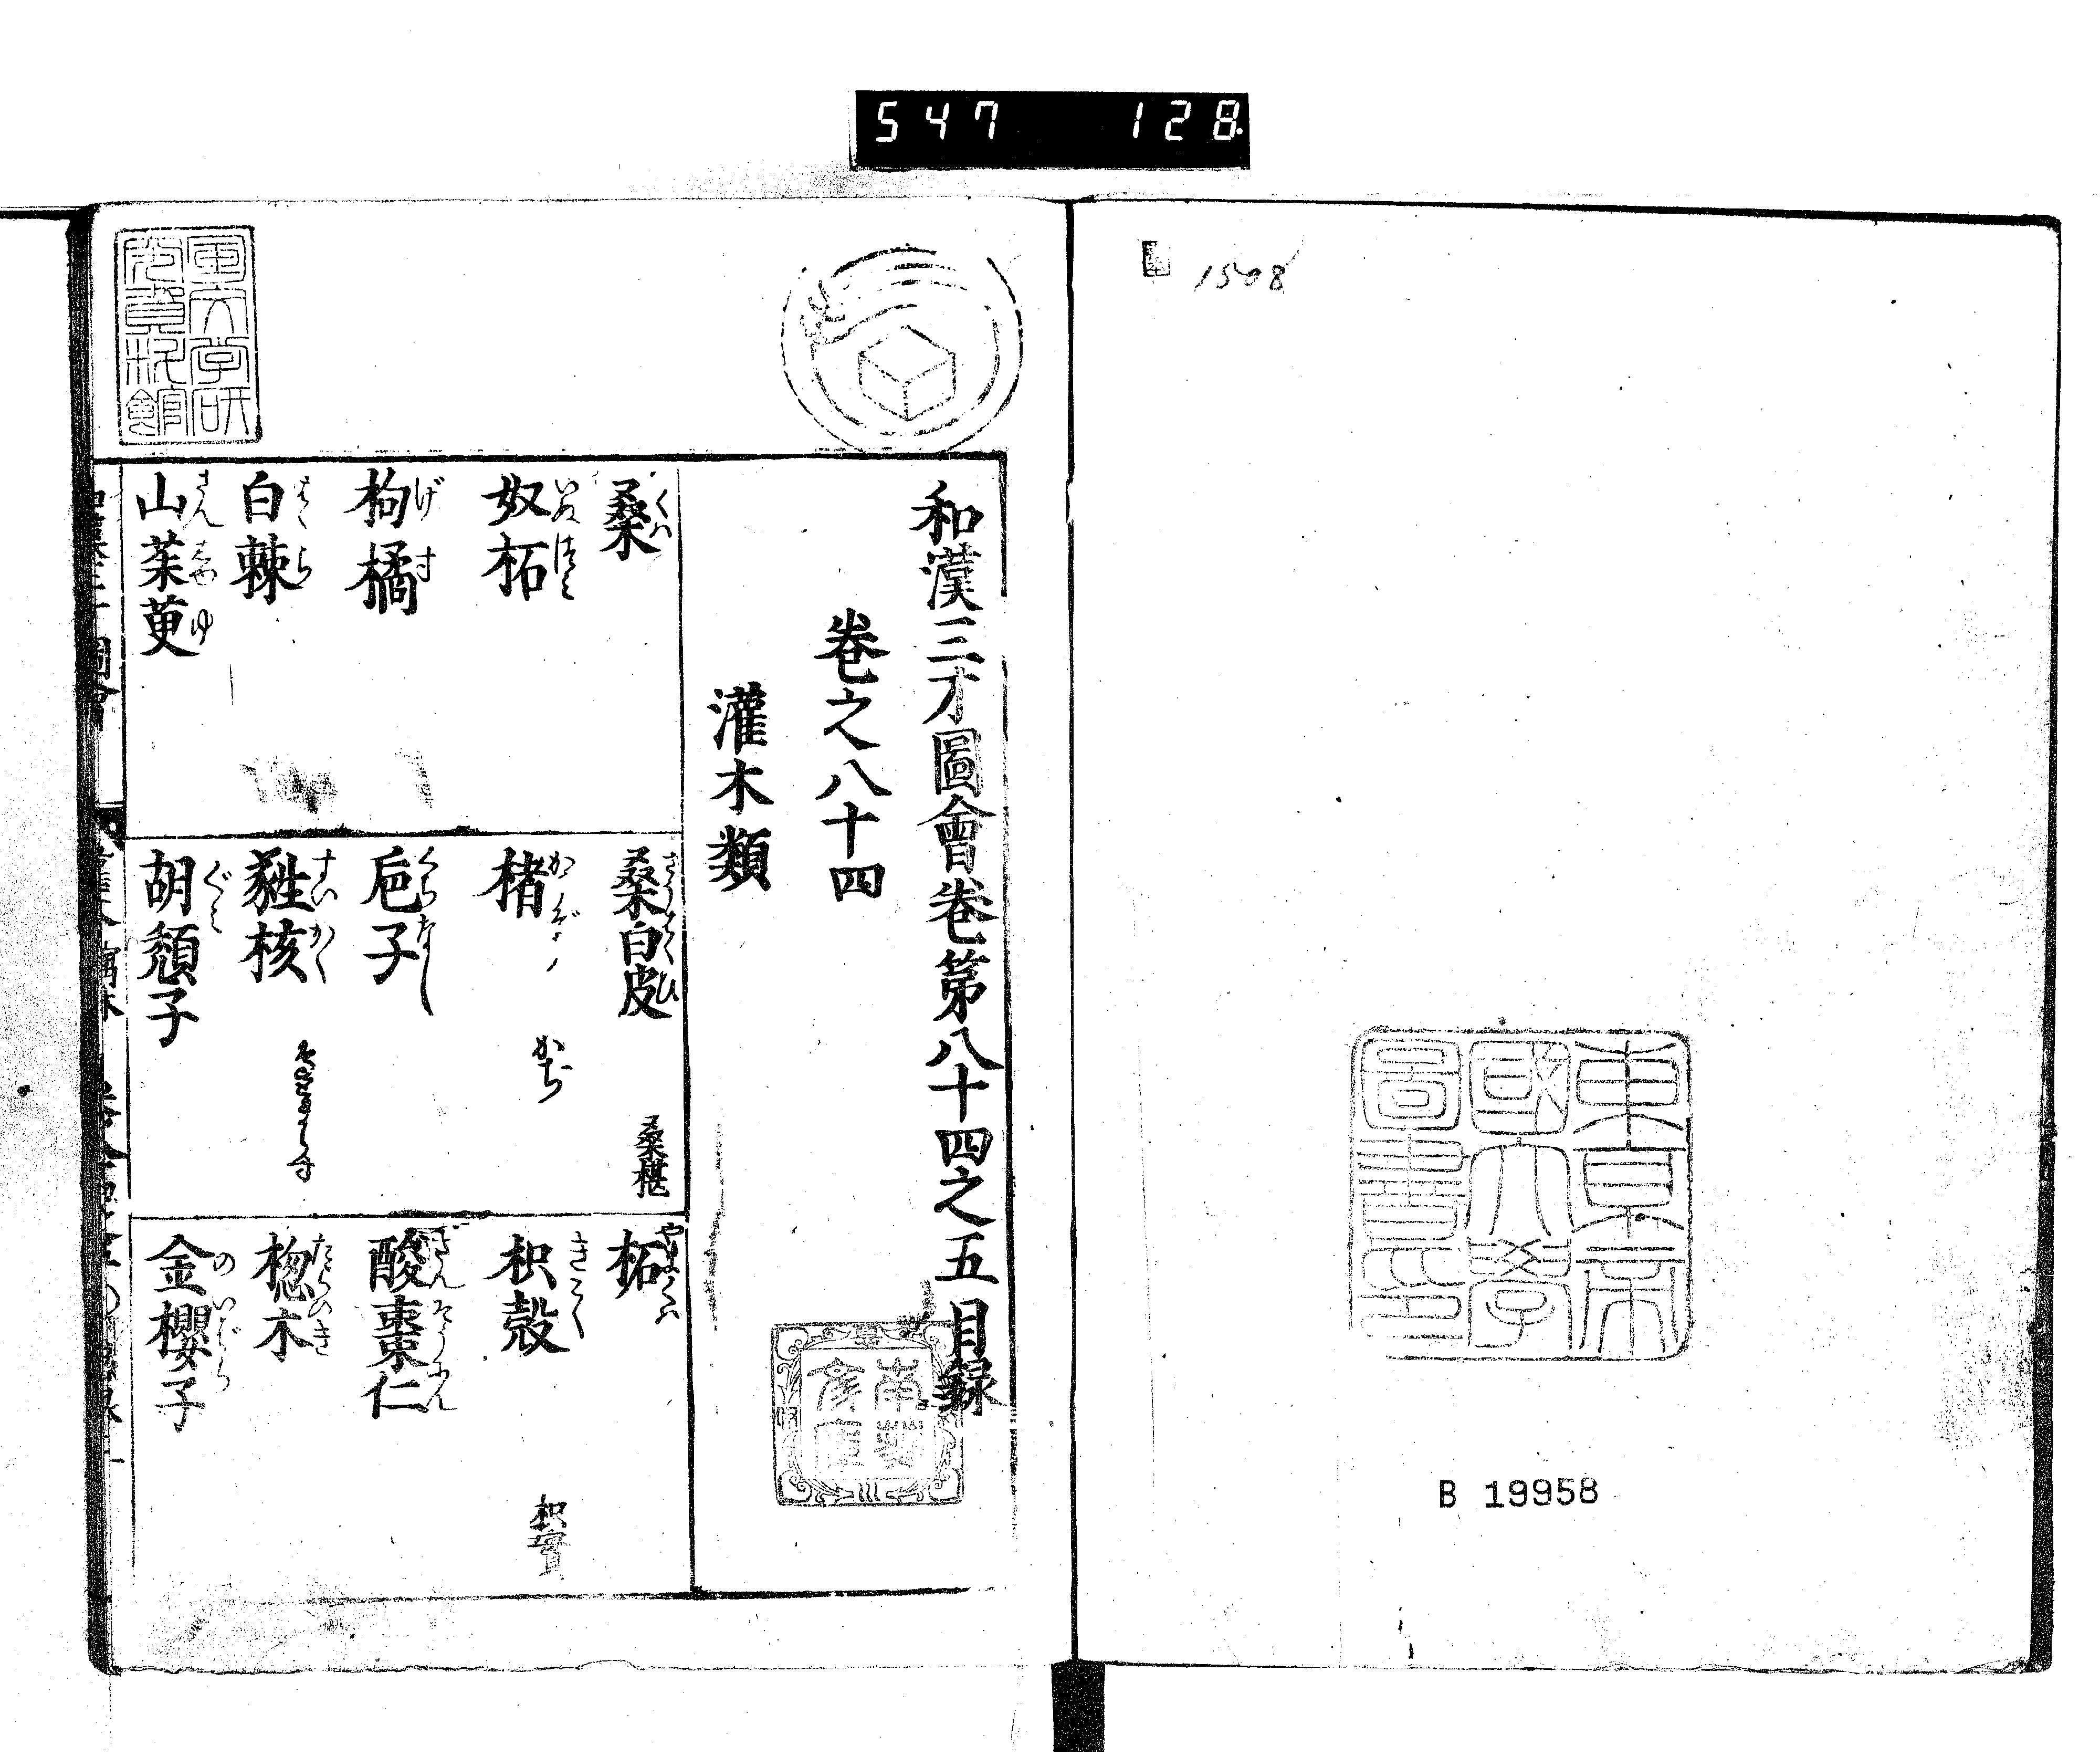 547 128
1508
東京帝
國大學
圖書印
B 19958
和漢三才圖會卷第八十四之五目録
卷之八十四
灌木類
桑 くは
桑白皮 さうはくひ 桑椹
柘 やまくは
奴柘 いぬつげ
楮 かぞ かぢ
枳殼 きこく 枳實
枸橘 げす
巵子 くちなし
酸棗仁 さんそうにん
白棘 はくら
蕤核 すいかく
楤木 たらのき
山茱萸 さんしゆゆ
胡頽子 ぐみ
金櫻子 のいばら